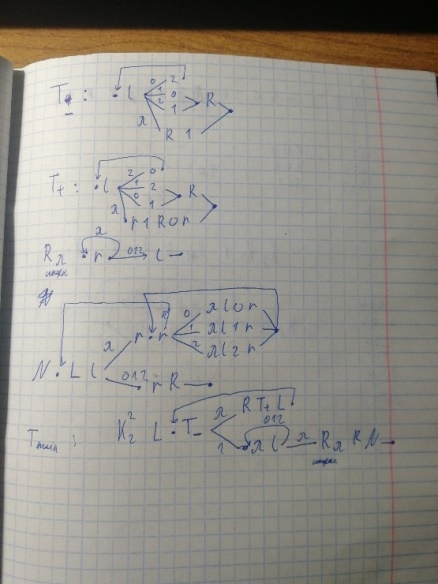 T_- : . l 0 2
1 0 R
2 1
λ R 1
T_+ : . l 2 0
1 2 R
0 1
λ r 1 R 0 r
R_λ . r λ 012 l
N . L l λ r . r 0 λ l 0 r
1 λ l 1 r
2 λ l 2 r
012 r R
K_2^2 L . T_- λ R T_+ L
1 . λ l 012 λ R_λ R N